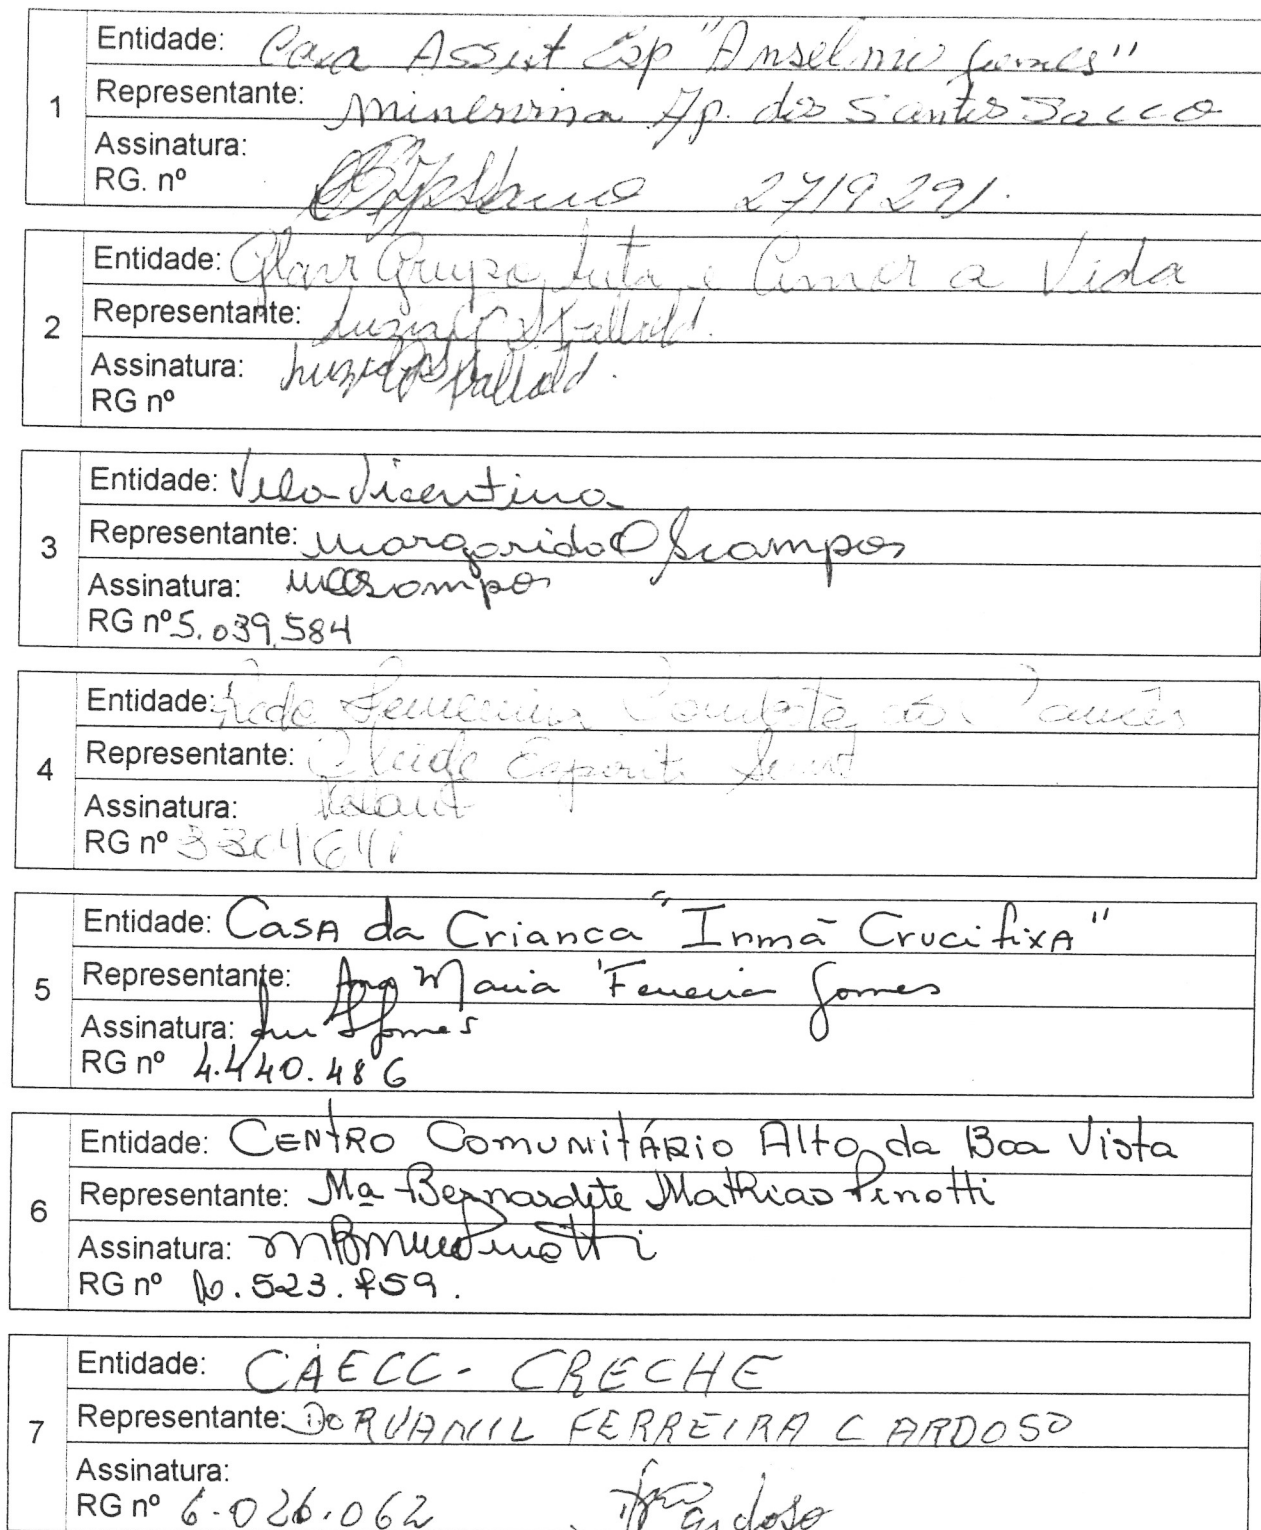 Entidade: Casa Assist Esp "Anselmo Gomes"
1
Representante: Minervina Ap. dos Santos Sacco
Assinatura:
RG. nº 2719291.
Entidade: Glav Grupo Luta e Amor a Vida
2
Representante: Luzia
Assinatura: Luzia
RG nº
Entidade: Vila Vicentina
3
Representante: Margarida O S Campos
Assinatura: MOSCampos
RG nº 5.039.584
Entidade: Rede Feminina Combate ao Cancêr
4
Representante: Cleide Espirito Santo
Assinatura:
RG nº
Entidade: Casa da Crianca "Irmã Crucifixa"
5
Representante: Ana Maria Ferreira Gomes
Assinatura: Gomes
RG nº 4.440.486
Entidade: Centro Comunitário Alto da Boa Vista
6
Representante: Mª Bernardete Mathias Pinotti
Assinatura: Pinotti
RG nº 10.523.759.
Entidade: CAECC - CRECHE
7
Representante: DORVAMIL FERREIRA CARDOSO
Assinatura:
RG nº 6.026.062 Cardoso